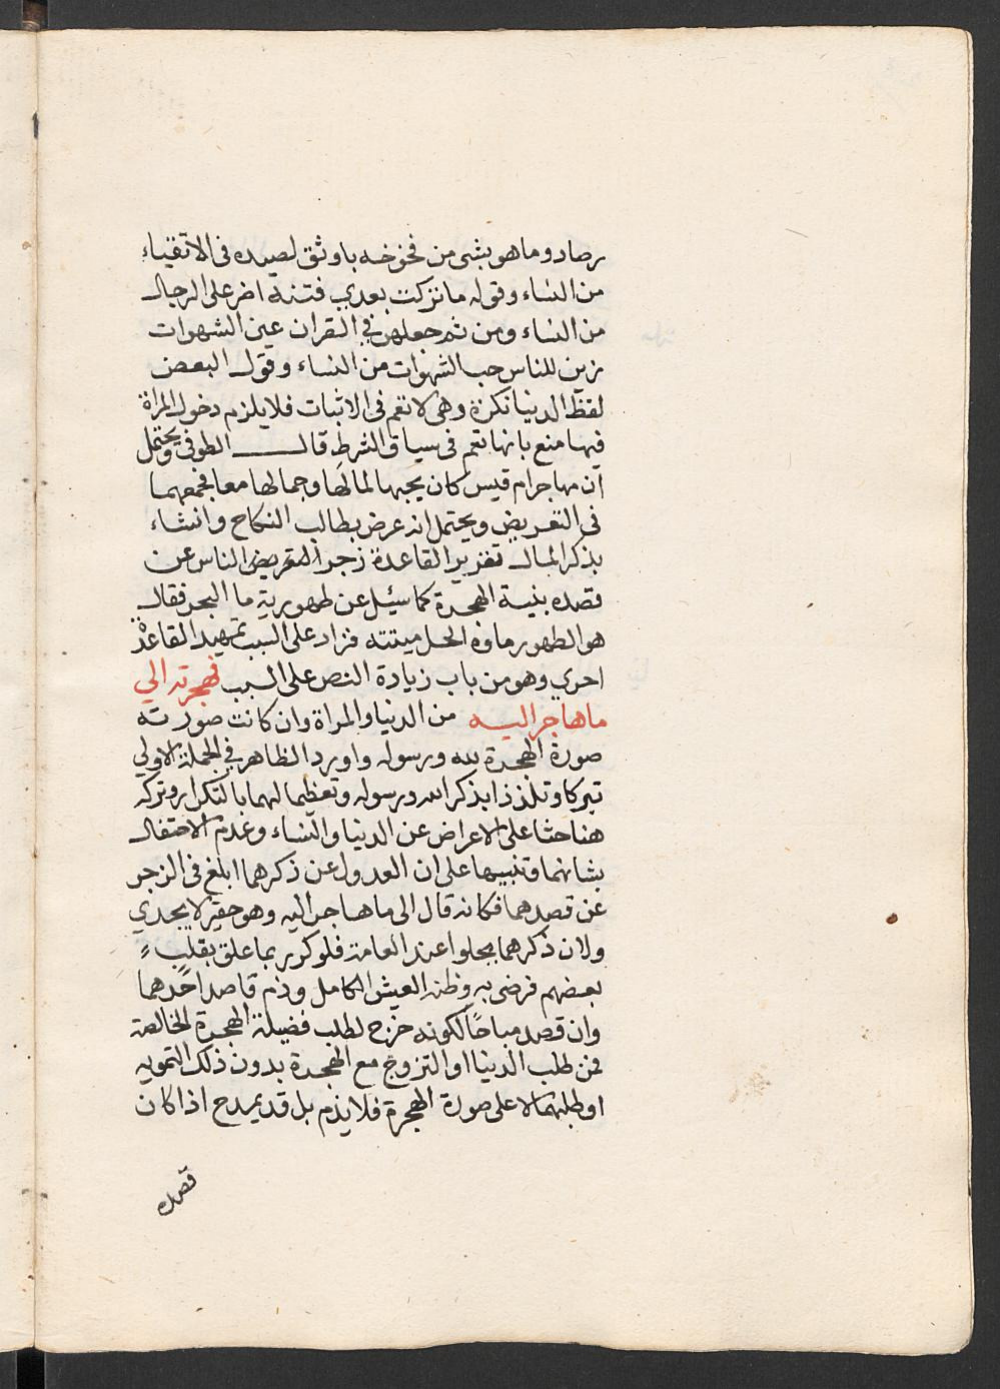 رصاد وما هو بشى من فخوخه باوثق لصيده فى الاتقياء
من النساء وقوله ما تركت بعدي فتنة اضر على الرجال
من النساء ومن ثم جعلهن في القران عين الشهوات
زين للناس حب الشهوات من النساء وقول البعض
لفظ الدنيا نكرة وهى لا تعم فى الاثبات فلا يلزم دخول المراة
فيها منع بانها تعم فى سياق الشرط قال الطوفى ويحتمل
ان مهاجر ام قيس كان يحبها لمالها وجمالها معا فجمعهما
فى التعريض ويحتمل انه عرض بطالب النكاح وانشاء
بذكر المال تقريرا لقاعدة زجر التعريض الناس عن
قصده بنية الهجرة كما سيئل عن طهورية ما البحر فقال
هو الطهور ماوه الحل ميتته فزاد على السبب تمهيدا لقاعدة
اخري وهو من باب زيادة النص على السبب فهجرته الي
ما هاجر اليه من الدنيا والمراة وان كانت صورته
صورة الهجرة لله ورسوله واورد الظاهر في الجملة الاولي
تبركا وتلذذا بذكر الله ورسوله وتعظيما لهما بالتكرار وتركه
هنا حثا على الاعراض عن الدنيا والنساء وعدم الاحتفال
بشانهما وتنبيها على ان العدول عن ذكرهما ابلغ فى الزجر
عن قصدهما فكانه قال الى ما هاجر اليه وهو حقير لا يجدي
ولان ذكرهما يحلوا عند العامة فلو كرر بما علق بقلب
بعضهم فرضى به وظنه العيش الكامل وذم قاصد احدهما
وان قصد مباحًا لكونه خرج لطلب فضيلة الهجرة الخالصة
فمن طلب الدنيا او التزوج مع الهجرة بدون ذلك التمويه
او طلبهما لا على صورة الهجرة فلا يذم بل قد يمدح اذا كان
قصده